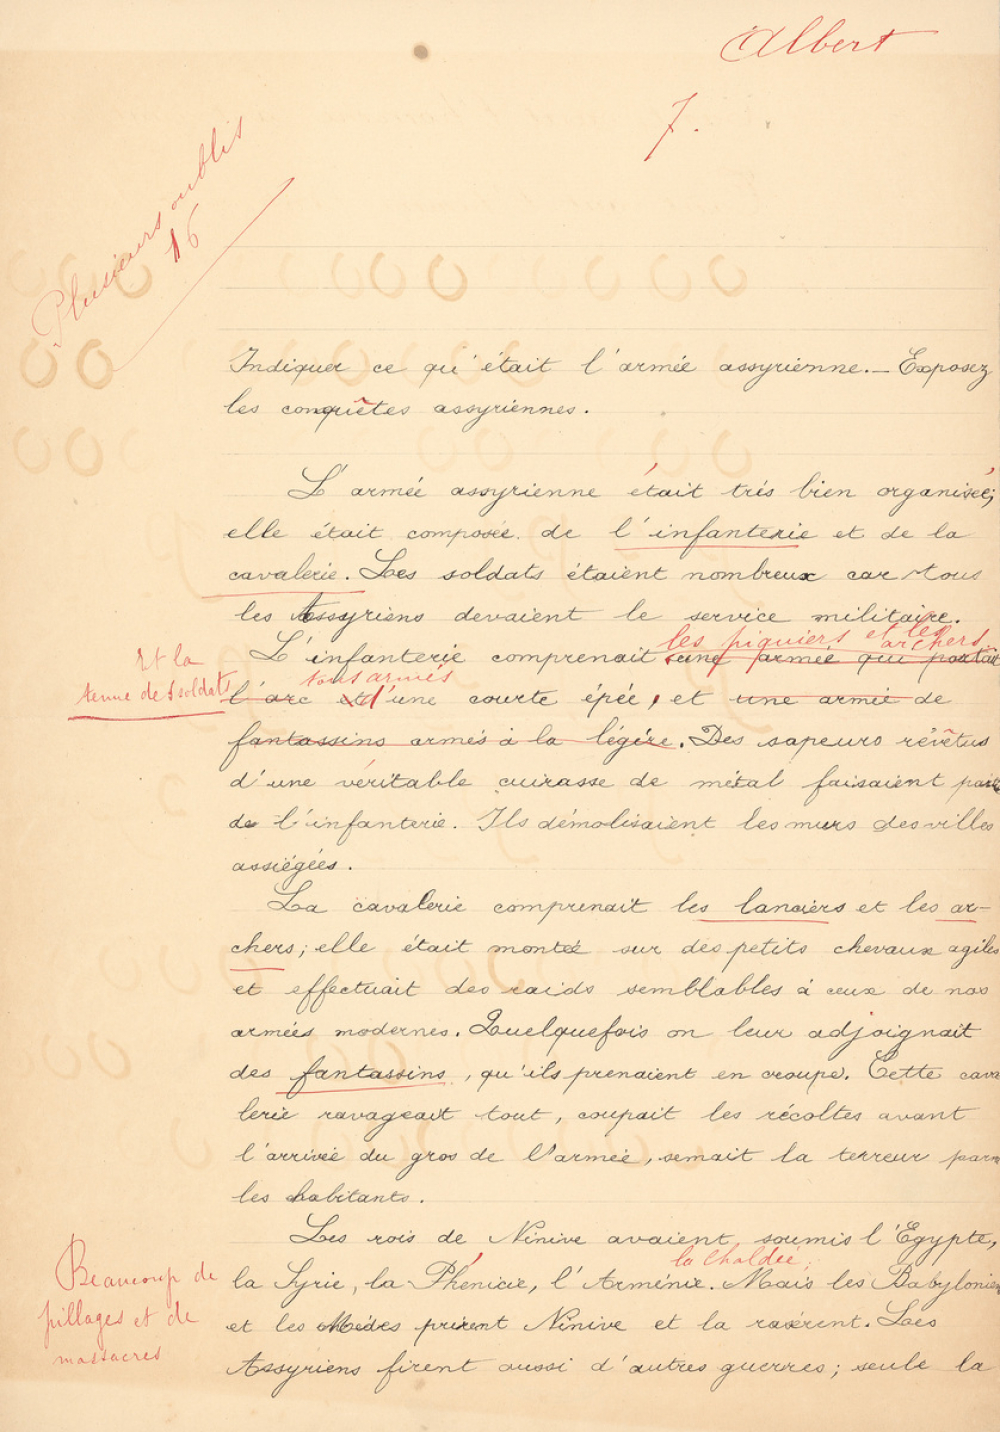 Albert
7.
Plusieurs oublis
16
Indiquer ce qu'était l'armée assyrienne. — Exposez
les conquêtes assyriennes.
L'armée assyrienne était très bien organisée;
elle était composée de l'infanterie et de la
cavalerie. Les soldats étaient nombreux car tous
les Assyriens devaient le service militaire.
les piquiers et les archers
Et la
L'infanterie comprenait une armée qui portait
tous armés
tenue des soldats
l'arc et d'une courte épée, et une armée de
fantassins armés à la légère. Des sapeurs revêtus
d'une véritable cuirasse de métal faisaient partie
de l'infanterie. Ils démolisaient les murs des villes
assiégées.
La cavalerie comprenait les lanciers et les ar-
chers; elle était montée sur des petits chevaux agiles
et effectuait des raids semblables à ceux de nos
armées modernes. Quelquefois on leur adjoignait
des fantassins, qu'ils prenaient en croupe. Cette cava
lerie ravageait tout, coupait les récoltes avant
l'arrivée du gros de l'armée, semait la terreur parm
les habitants.
Les rois de Ninive avaient soumis l'Egypte,
la Chaldée;
Beaucoup de
la Syrie, la Phénicie, l'Arménie. Mais les Babyloniens
pillages et de
et les Mèdes prirent Ninive et la rasèrent. Les
massacres
Assyriens firent aussi d'autres guerres; seule la